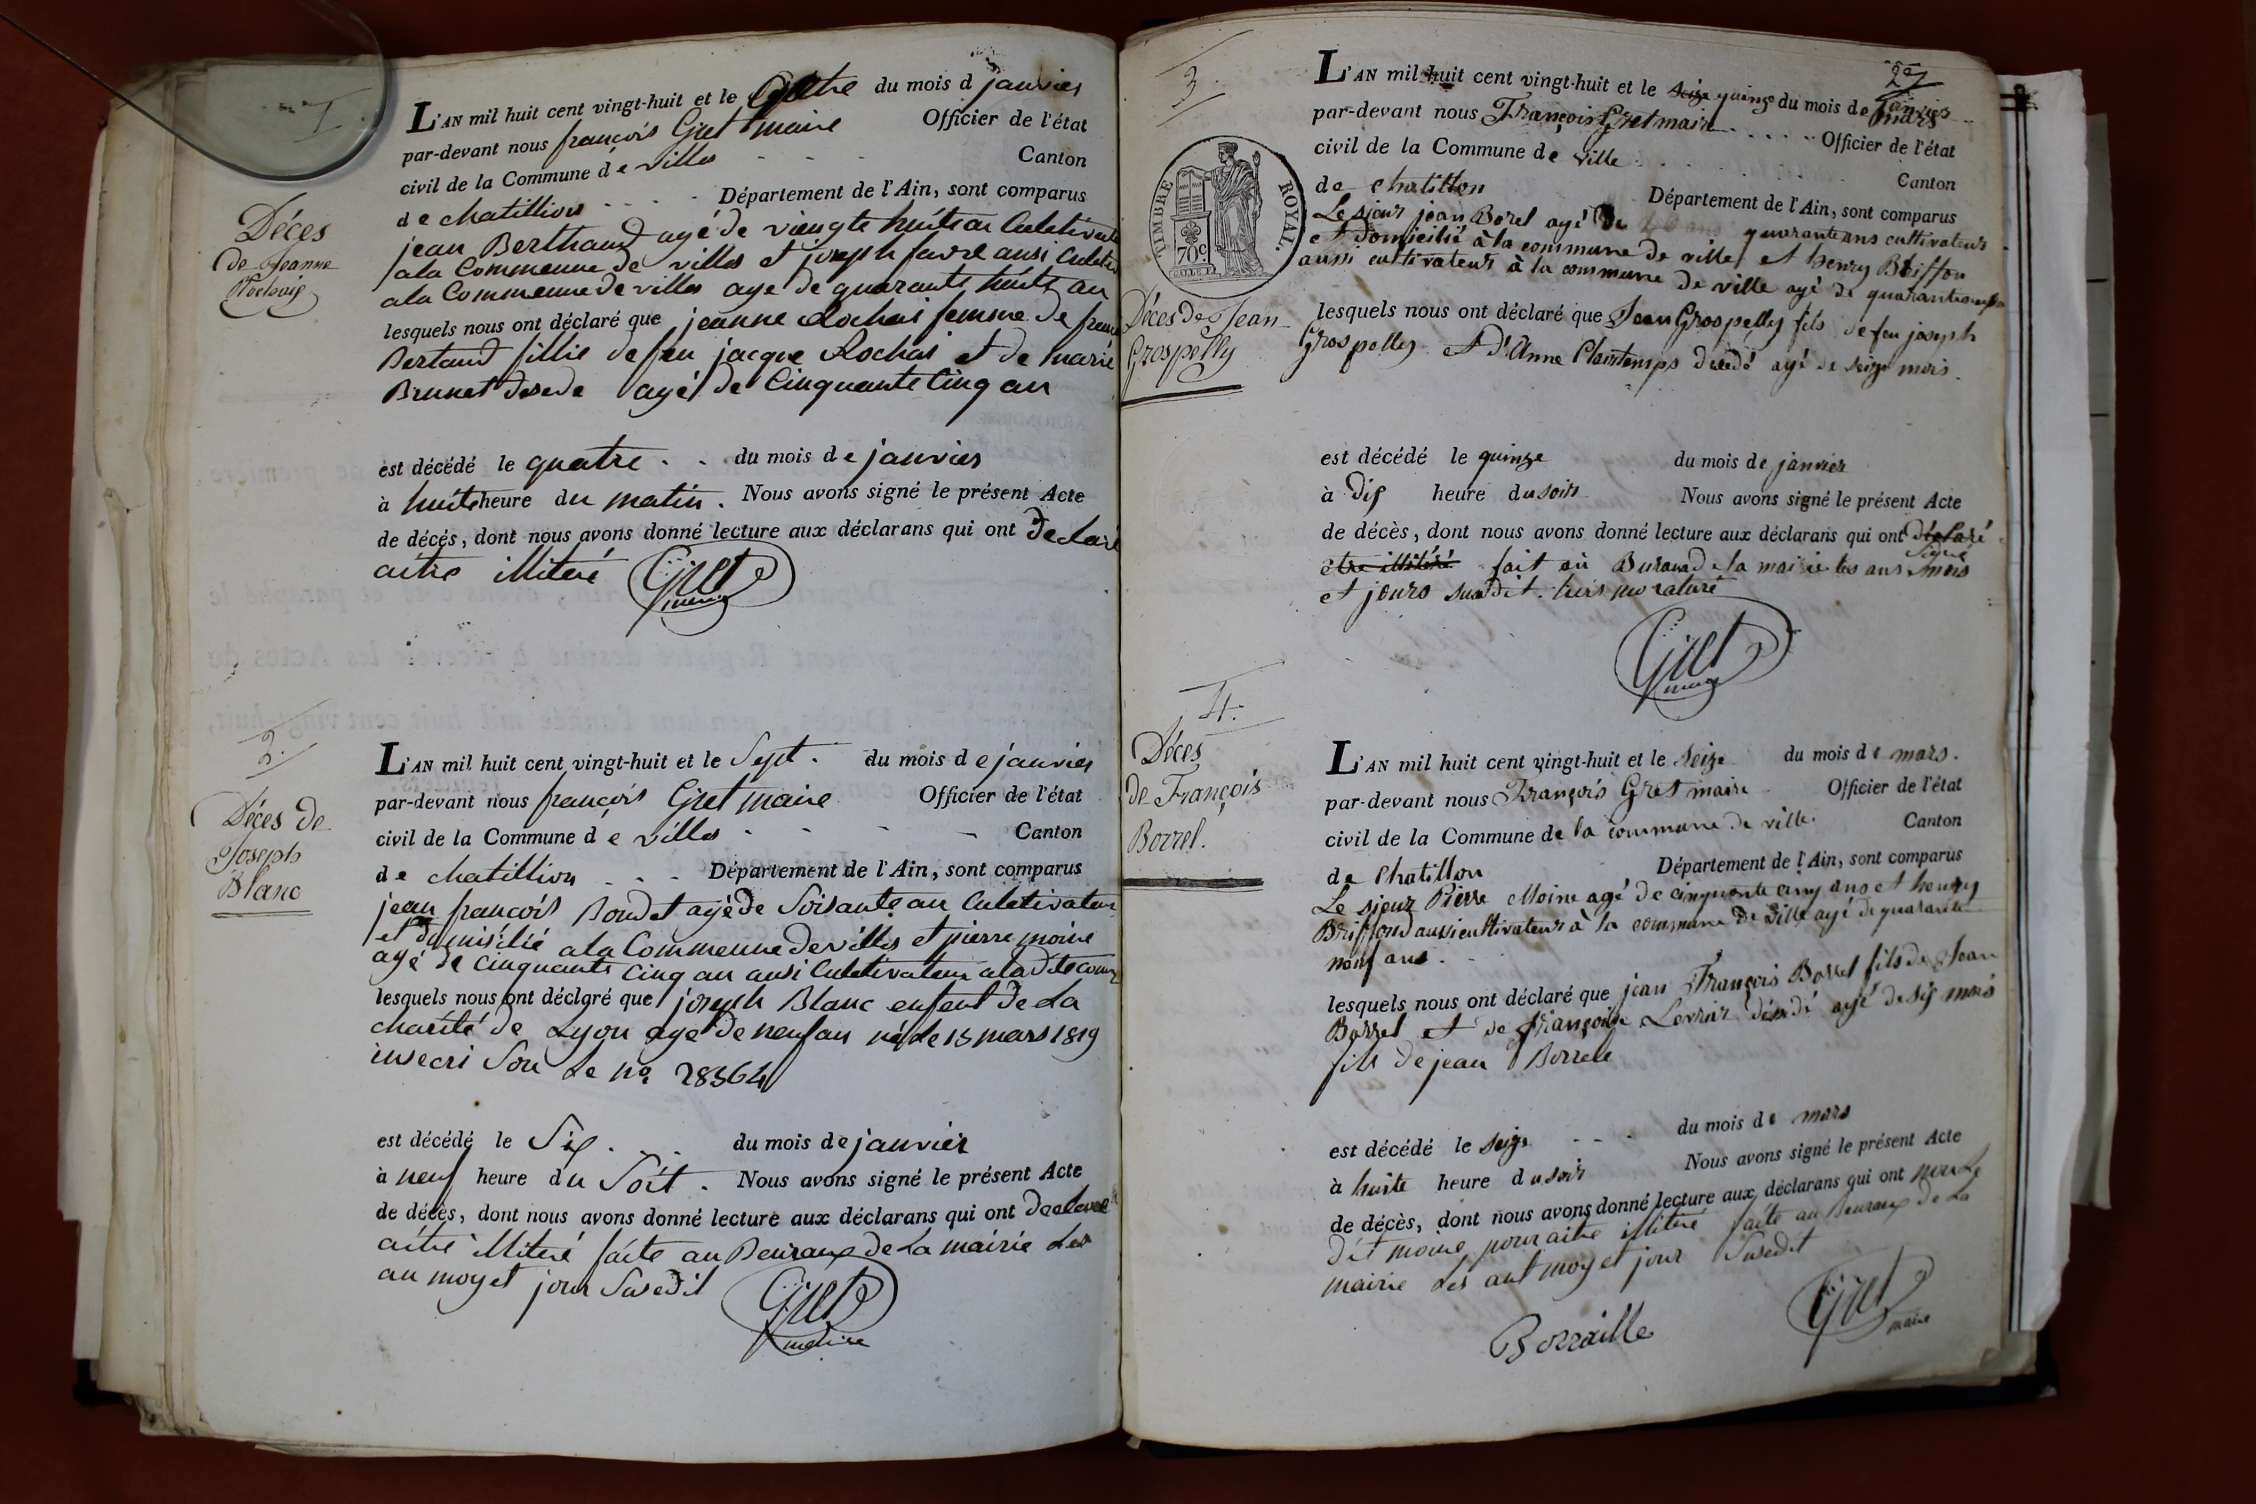 n° 1
Déces
de Jeanne
Rochais
L'AN mil huit cent vingt-huit et le quatre du mois d janvier
par-devant nous françois Gret maire Officier de l'état
civil de la Commune d e villes Canton
de chatillion Département de l'Ain, sont comparus
jean Berthaud agé de viengte huite an Culetivate
a la Commeune de villes et joseph favre ausi Culetiv
a la Commeune de villes age de quarante huite an
lesquels nous ont déclaré que jeanne Rochai femme de franc
Bertaud fillie de feu jacque Rochai et de marie
Brunet desede agé de Cinquante Cinq an
est décédé le quatre du mois de janvier
à huite heure du matin. Nous avons signé le présent Acte
de décès, dont nous avons donné lecture aux déclarans qui ont declaré
aitre illiteré Gret
maire
2.
Déces de
Joseph
Blanc
L'AN mil huit cent vingt-huit et le Sept. du mois d e janvier
par-devant nous françois Gret maire Officier de l'état
civil de la Commune d e villes Canton
de chatillion Département de l'Ain, sont comparus
jean françois Boudet agé de Soisante an Culetivateur
et domisilié a la Commeune de villes et pierre moine
agé de cinquante cinq an ausi Culetivateur a la dite com
lesquels nous ont déclaré que joseph Blanc enfent de La
charité de Lyon age de neuf an né le 15 mars 1819
insecri Sou Le n° 28364
est décédé le Six du mois de janvier
à neuf heure du Soit. Nous avons signé le présent Acte
de décès, dont nous avons donné lecture aux déclarans qui ont declaré
aitre illiteré faite au Beuraux de La mairie Les
an moy et jour Susedit Gret
maire
3.
2e
TIMBRE ROYAL.
70c
Déces de Jean
Grospelly
L'AN mil huit cent vingt-huit et le seize quinze du mois de janvier
mars
par-devant nous François Gret maire Officier de l'état
civil de la Commune de ville Canton
de Chatillon Département de l'Ain, sont comparus
Le sieur jean Borel agé de quarante ans cultivateur
et domicilié à la commune de ville et henry Briffon
aussi cultivateur à la commune de ville agé de quarante
lesquels nous ont déclaré que Jean Grospelly fils de feu joseph
Grospelly et d'Anne Plantemps décédé agé de seize mois.
est décédé le quinze du mois de janvier
à dix heure du soir Nous avons signé le présent Acte
de décès, dont nous avons donné lecture aux déclarans qui ont déclaré
signé
etre illitéré fait au Bureau de la mairie les ans mois
et jours susdit.
Gret
maire
4.
Déces
de François
Borrel.
L'AN mil huit cent vingt-huit et le seize du mois de mars.
par-devant nous François Gret maire Officier de l'état
civil de la Commune de la commune de ville. Canton
de Chatillon Département de l'Ain, sont comparus
Le sieur Pierre Moine agé de cinquante cinq ans et henry
Briffond aussi cultivateur à la commune de ville agé de quarante
neuf ans.
lesquels nous ont déclaré que jean François Borrel fils de Jean
Borrel et de françoise Levrier décédé agé de six mois
fils de jean Borrele
est décédé le seize du mois de mars
à huite heure du soir Nous avons signé le présent Acte
de décès, dont nous avons donné lecture aux déclarans qui ont non Le
dit moine pour aitre illiteré faite au Beuraux de La
mairie Les ant moy et jour Susedit
Borraille Gret
maire